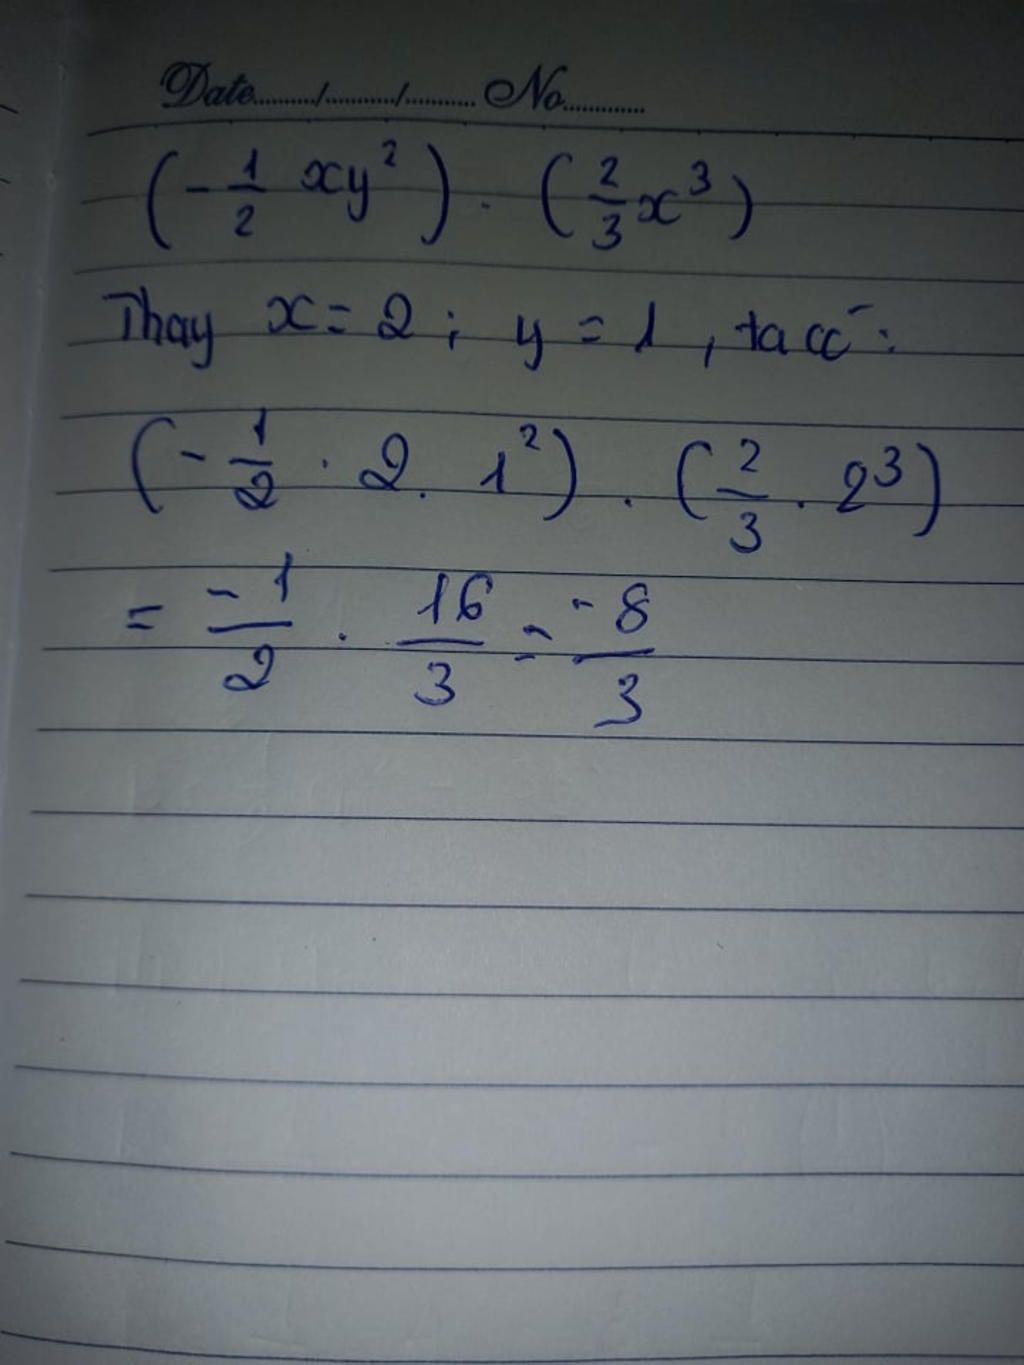 Date........./........./......... No..........
(-1/2 xy²) . (2/3 x³)
Thay x = 2 ; y = 1 , ta có :
(-1/2 . 2 . 1²) . (2/3 . 2³)
= -1/2 . 16/3 = -8/3